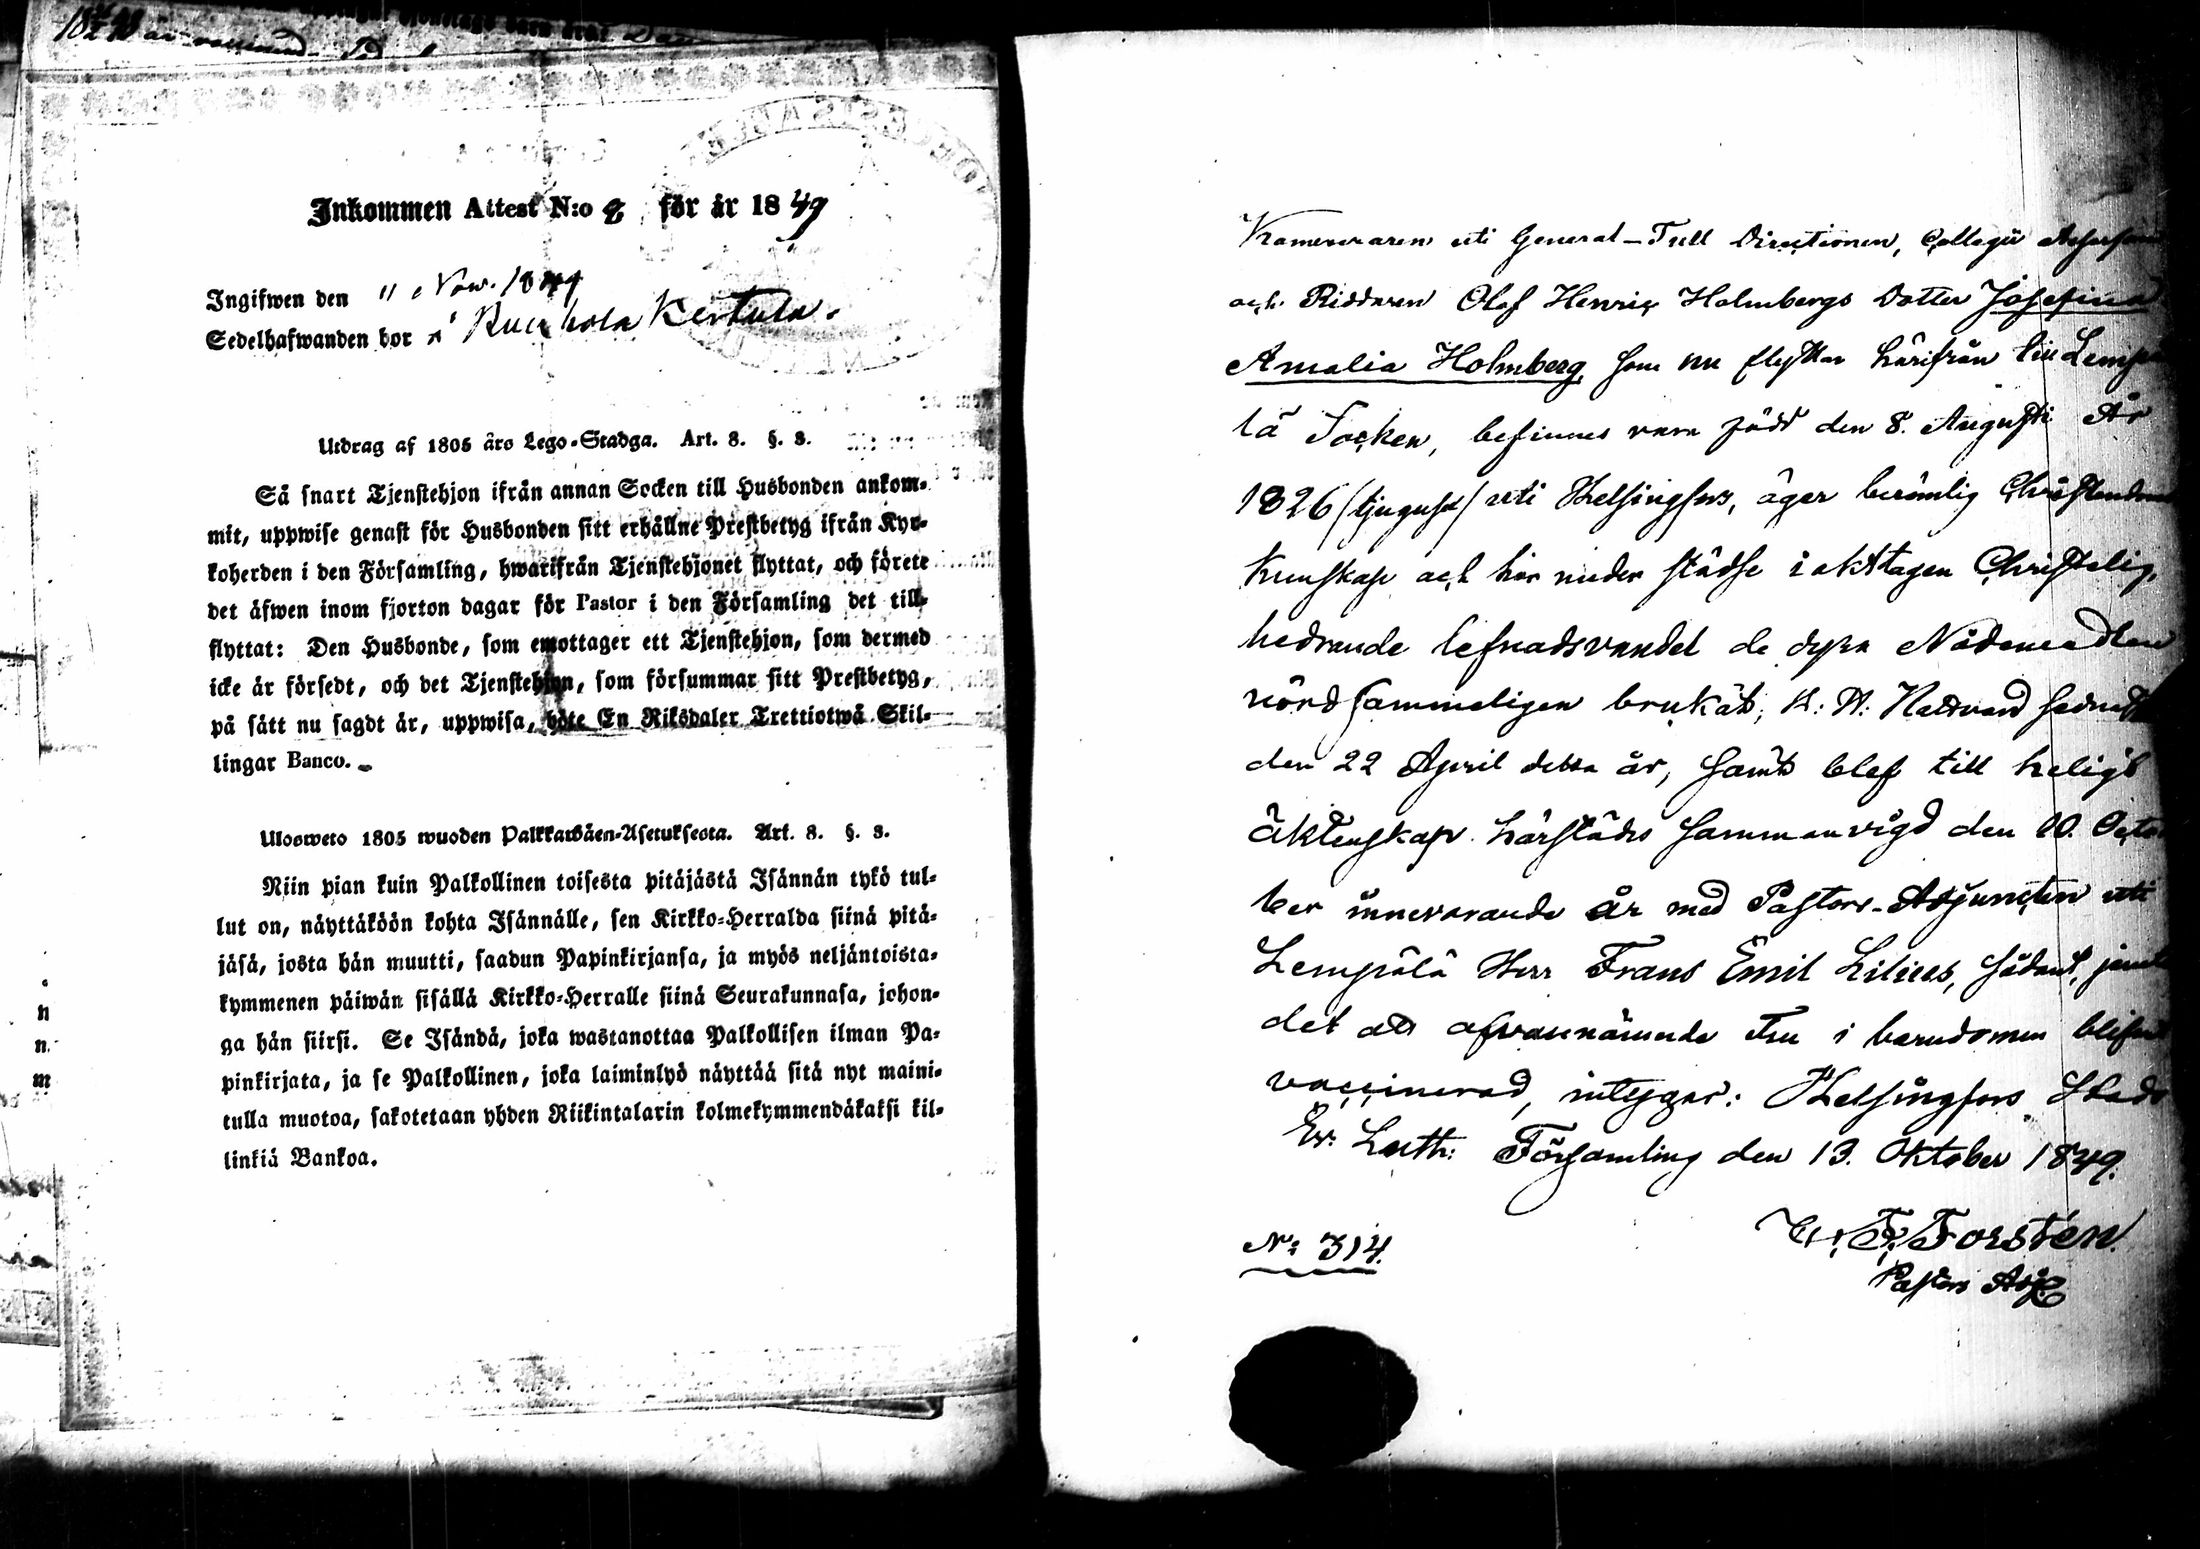 Inkommen Attest N:o 8 för år 1849
Ingifwen den " Nov. 1849
Sedelhafwanden bor å Kuckola Kertula.
Utdrag af 1805 års Lego-Stadga. Art. 8. §. 3.
Så snart Tjenstehjon ifrån annan Socken till Husbonden ankom-
mit, uppwise genast för Husbonden sitt erhållne Prestbetyg ifrån Kyr-
koherden i den Församling, hwarifrån Tjenstehjonet flyttat, och förete
det äfwen inom fjorton dagar för Pastor i den Församling det till-
flyttat: Den Husbonde, som emottager ett Tjenstehjon, som dermed
icke är försedt, och det Tjenstehjon, som försummar sitt Prestbetyg,
på sätt nu sagdt är, uppwisa, böte En Riksdaler Trettiotwå Skil-
lingar Banco.
Ulosweto 1805 wuoden Palkkawäen-Asetuksesta. Art. 8. §. 3.
Niin pian kuin Palkollinen toisesta pitäjästä Isännän tykö tul-
lut on, näyttäköön kohta Isännälle, sen Kirkko-Herralda siinä pitä-
jäsä, josta hän muutti, saadun Papinkirjansa, ja myös neljäntoista-
kymmenen päiwän sisällä Kirkko-Herralle siinä Seurakunnasa, johon-
ga hän siirsi. Se Isändä, joka wastanottaa Palkollisen ilman Pa-
pinkirjata, ja se Palkollinen, joka laiminlyö näyttää sitä nyt maini-
tulla muotoa, sakotetaan yhden Riikintalarin kolmekymmendäkaksi kil-
linkiä Bankoa.
Kamereraren uti General-Tull Directionen, Collegii
och Riddaren Olof Henric Holmbergs Dotter Josefina
Amalia Holmberg, som nu flyttar härifrån till Lempä
lä Socken, befinnes vara född den 8. Augusti År
1826 /tjugusex/ uti Helsingfors, äger berömlig Christendoms
Kunskap och har under städse iakttagen Christelig,
hedrande lefnadsvandel de dyra Nådemedlen
vördsammeligen brukat; H: H: Nattvard sednast
den 22 April detta år, samt blef till heligt
äktenskap härstädes sammanvigd den 10. Octo
ber innevarande år med Pastors-Adjuncten uti
Lempälä Herr Frans Emil Lilius, sådant, jemte
det att ofvannämnde Fru i barndomen blifvit
vaccinerad, intygar: Helsingfors Stads
Ev. Luth: Församling den 13. Oktober 1849.
F. Forstén.
Pastors Adj.
N: 314.